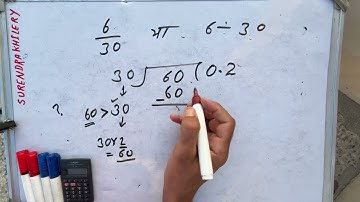 SURENDRAKHILERY
6/30 या 6÷30
30)60(0.2
-60
? 60>30
30×2
=60